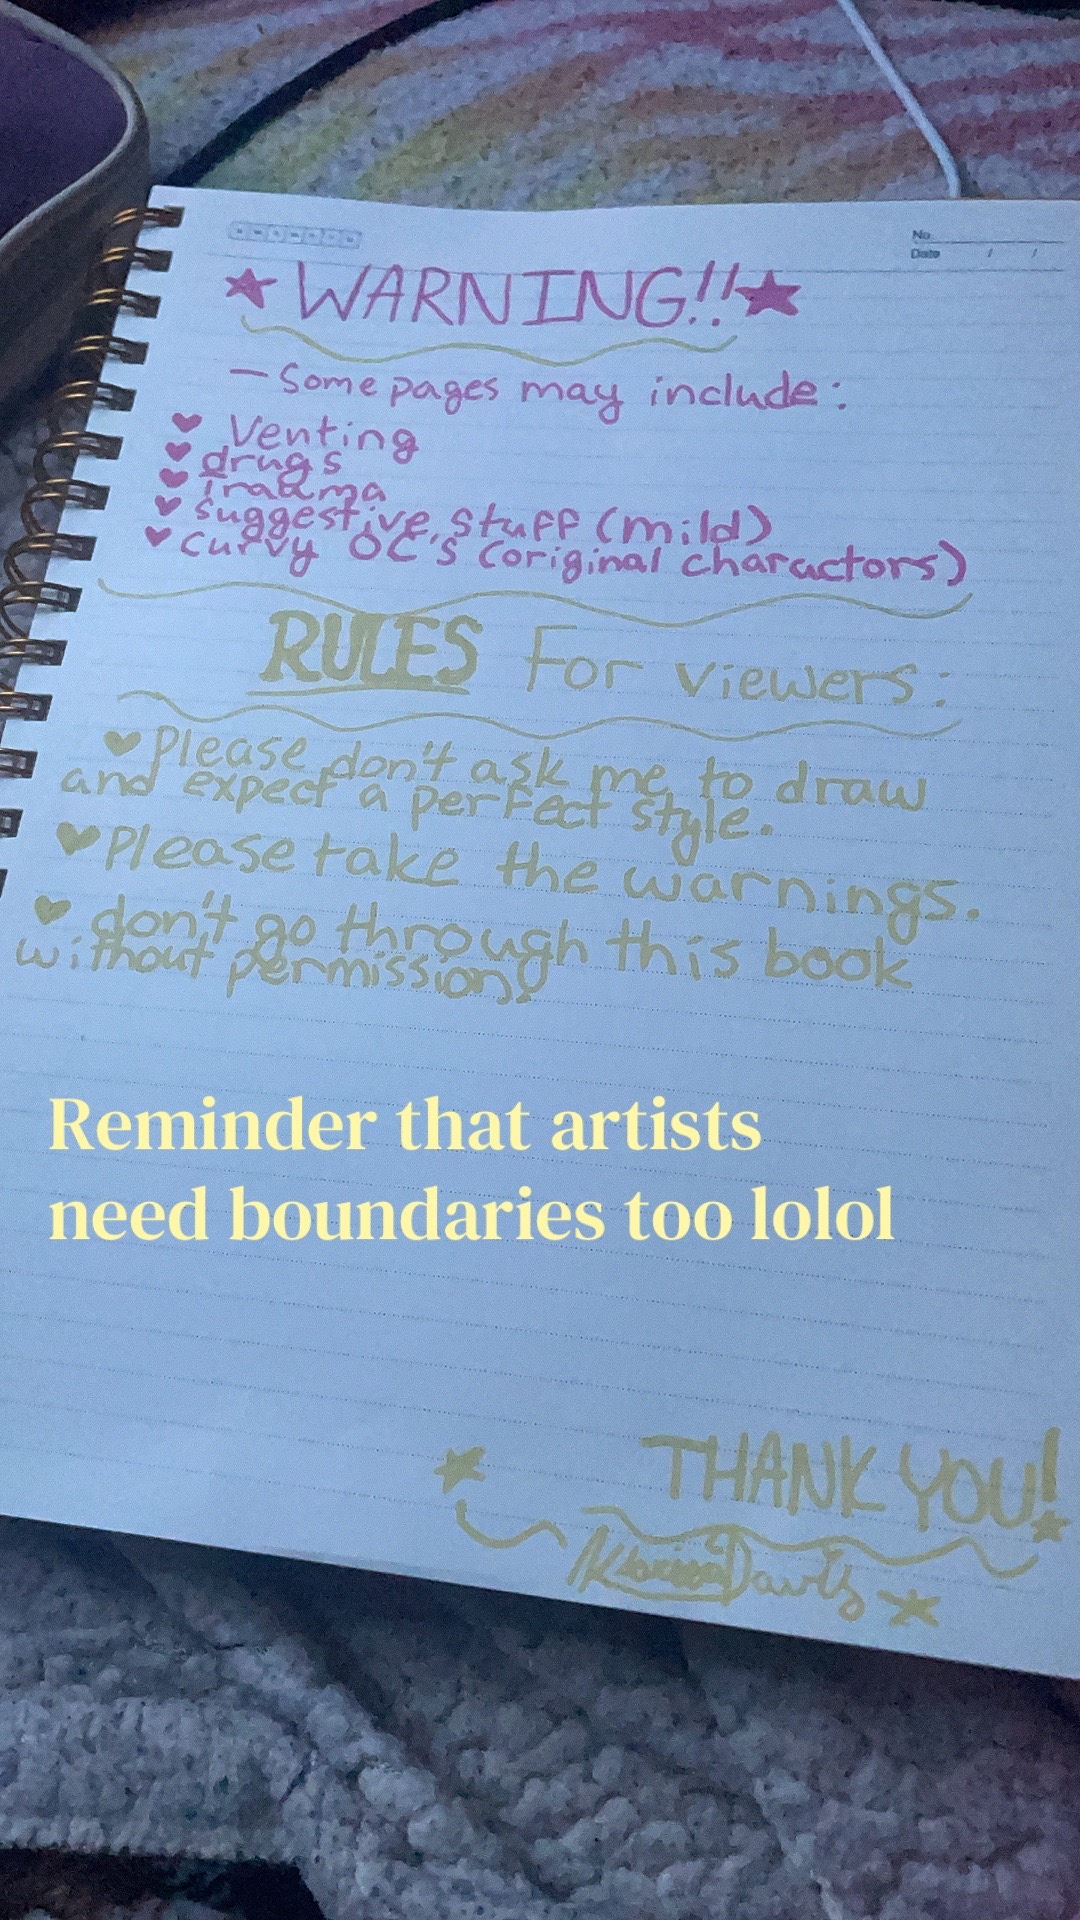 No.
Date / /
WARNING!!
- Some pages may include:
Venting
drugs
Trauma
suggestive stuff (mild)
curvy OC's (original charactors)
RULES for viewers:
Please don't ask me to draw
and expect a perfect style.
Please take the warnings.
don't go through this book
without permission!
Reminder that artists
need boundaries too lolol
THANK YOU!
Davis